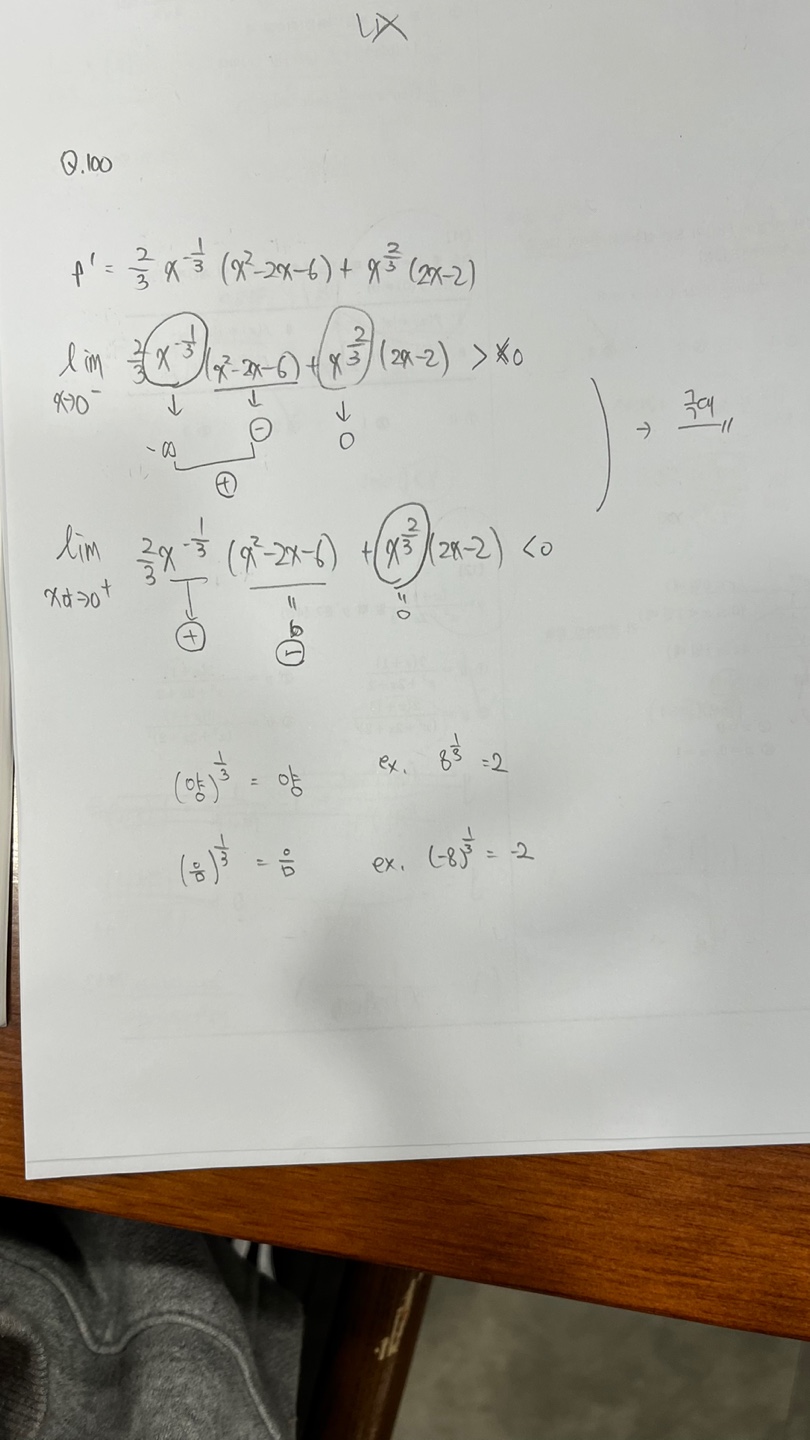 Q.100
f' = 2/3 x^(-1/3) (x²-2x-6) + x^(2/3) (2x-2)
lim x→0⁻ 2/3 x^(-1/3) (x²-2x-6) + x^(2/3) (2x-2) > 0
↓ ↓ ↓
-∞ ⊖ 0
⊕
→ 극대 〃
lim x→0⁺ 2/3 x^(-1/3) (x²-2x-6) + x^(2/3) (2x-2) < 0
↓ 〃 〃
⊕ ⊖ 0
(양)^(1/3) = 양 ex. 8^(1/3) = 2
(음)^(1/3) = 음 ex. (-8)^(1/3) = -2